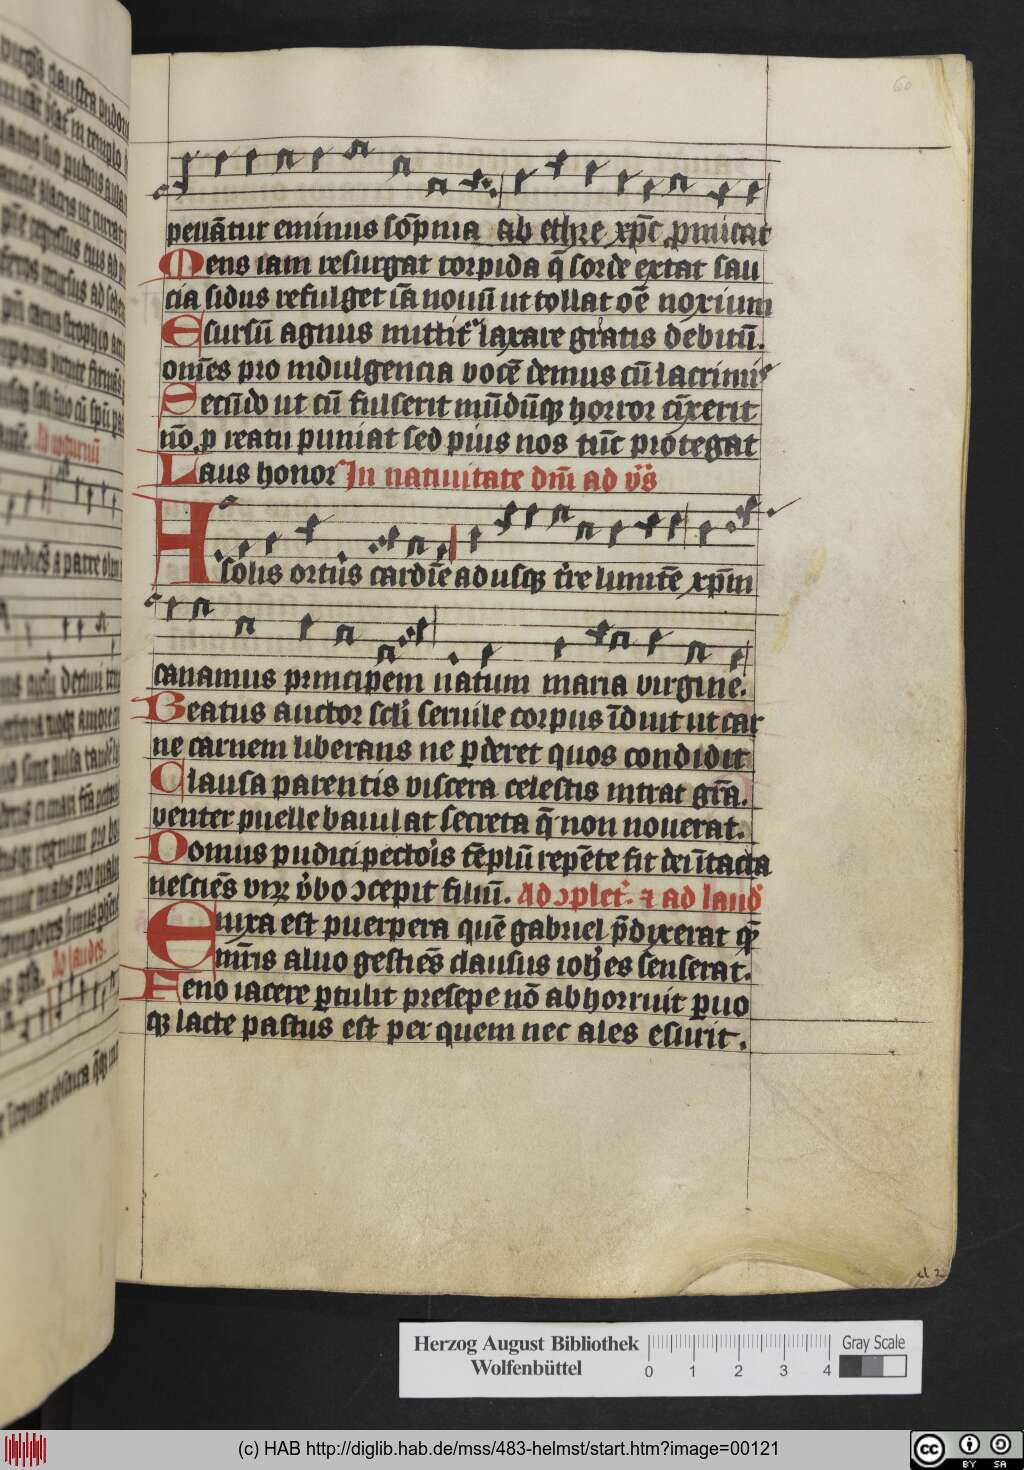 60
pellātur eminus sōpnia ab ethre xp̄c ꝓmicat
Mens iam resurgat torpida q̄ sorde extat sau
cia sidus refulget iā nouū ut tollat oē noxium
Esursū agnus mittit᷑ laxare gratis debitū.
om̄es pro indulgencia vocē demus cū lacrimis
Secūdo ut cū fulserit mūdūqꝫ horror cīxerit
nō ꝓ reatu puniat sed pius nos tūc protegat
Laus honor In natiuitate dm̄i ad v̄s
A solis ortus cardīe ad usqꝫ t̄re limitē xp̄m
canamus principem natum maria virgine.
Beatus auctor scl̄i seruile corpus īduit ut car
ne carnem liberans ne ꝑderet quos condidit
Clausa parentis viscera celestis intrat gr̄a.
venter puelle baiulat secreta q̄ non nouerat.
Domus pudici pectoīs tēplū repēte fit dei ītacta
nesciēs virꝝ v̓bo ꝯcepit filiū. Ad ꝯplet̓. ⁊ ad laud̓
Enixa est puerpera quē gabriel p̄dixerat qm̄
mr̄is aluo gestiēs clausus ioh̄es senserat.
Feno iacere ꝑtulit presepe nō abhorruit ꝑuo
qꝫ lacte pastus est per quem nec ales esurit.
d 2
Herzog August Bibliothek
Wolfenbüttel
0 1 2 3 4
Gray Scale
(c) HAB http://diglib.hab.de/mss/483-helmst/start.htm?image=00121
cc BY SA